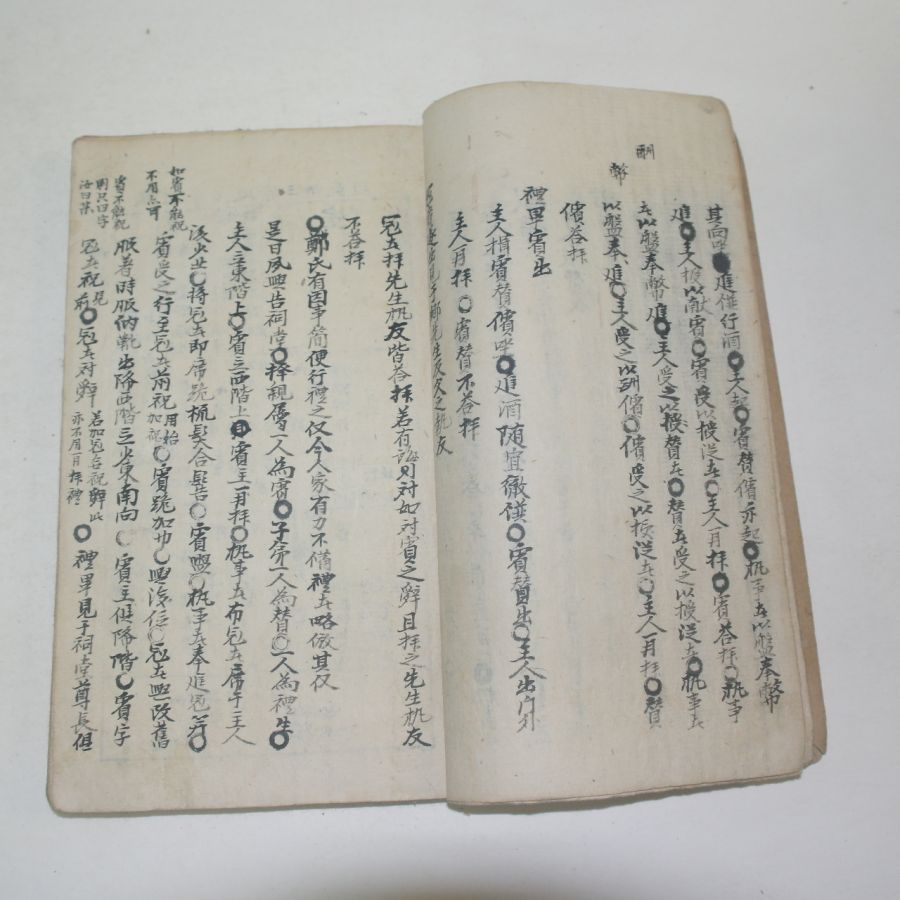 酬
幣
其向坐進饌行酒○主人起○賓贊儐亦起○执事者以盤奉幣
進○主人授以献賓○賓受以授從者○主人再拜○賓荅拜○执事
者以盤奉幣進○主人受之以授贊者○贊者受之以授從者○执事者
以盤奉進○主人受之以酬儐○儐受之以授從者○主人再拜○贊
儐荅拜
禮畢賓出
主人揖賓贊儐坐○進酒随宜徹饌○賓贊出○主人出門外
主人再拜○賓贊不荅拜
冠者拜先生执友皆荅拜若有誨則对如对賓之辞且拜之先生执友
不荅拜
○鄭氏有因事簡便行禮之仪今人家有力不備禮者略倣其仪
是日夙興告祠堂○擇親屬一人為賓○子弟一人為贊○一人為禮生○
主人立東階上○賓立西階上○賓主再拜○执事者布冠者席于主人
後少北○將冠者即席跪梳髮合髻○賓興○执事者奉進冠笄○
賓受之行至冠者前祝用始加祝○賓跪加巾○興復位○冠者興改舊
服著時服納靴出降西階立少東南向○賓主俱降階○賓字
冠者祝見前○冠者对辞若加冠合祝辞此亦不用再拜禮○禮畢見于祠堂尊長但
如賓不能祝
不用亦可
賓不能祝
則只曰字
汝曰某